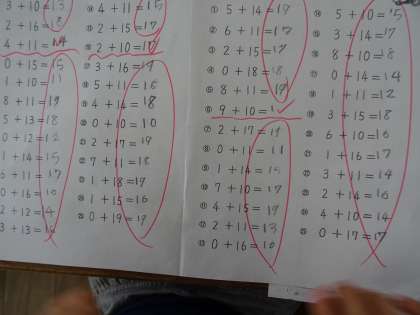 3 + 10 = 13
2 + 16 = 18
4 + 11 = 14
0 + 15 = 15
1 + 10 = 11
8 + 11 = 19
5 + 13 = 18
0 + 12 = 12
1 + 14 = 15
6 + 11 = 17
0 + 16 = 16
2 + 12 = 4
3 + 13 = 16
4 + 11 = 15
2 + 15 = 17
2 + 10 = 17
3 + 16 = 19
5 + 11 = 16
4 + 14 = 18
0 + 10 = 10
2 + 17 = 19
7 + 11 = 18
1 + 18 = 19
1 + 15 = 16
0 + 19 = 19
① 5 + 14 = 19
② 6 + 11 = 17
③ 2 + 15 = 17
④ 0 + 18 = 18
⑤ 8 + 11 = 19
⑥ 9 + 10 =
⑦ 2 + 17 = 19
⑧ 0 + 11 = 11
⑨ 1 + 14 = 15
⑩ 7 + 10 = 17
⑪ 4 + 15 = 19
⑫ 2 + 11 = 13
⑬ 0 + 16 = 16
⑭ 5 + 10 = 15
⑮ 3 + 14 = 17
⑯ 8 + 10 = 18
⑰ 0 + 14 = 14
⑱ 1 + 11 = 12
⑲ 3 + 15 = 18
⑳ 6 + 10 = 16
㉑ 1 + 16 = 17
㉒ 3 + 11 = 14
㉓ 2 + 14 = 16
㉔ 4 + 10 = 14
㉕ 0 + 17 = 17